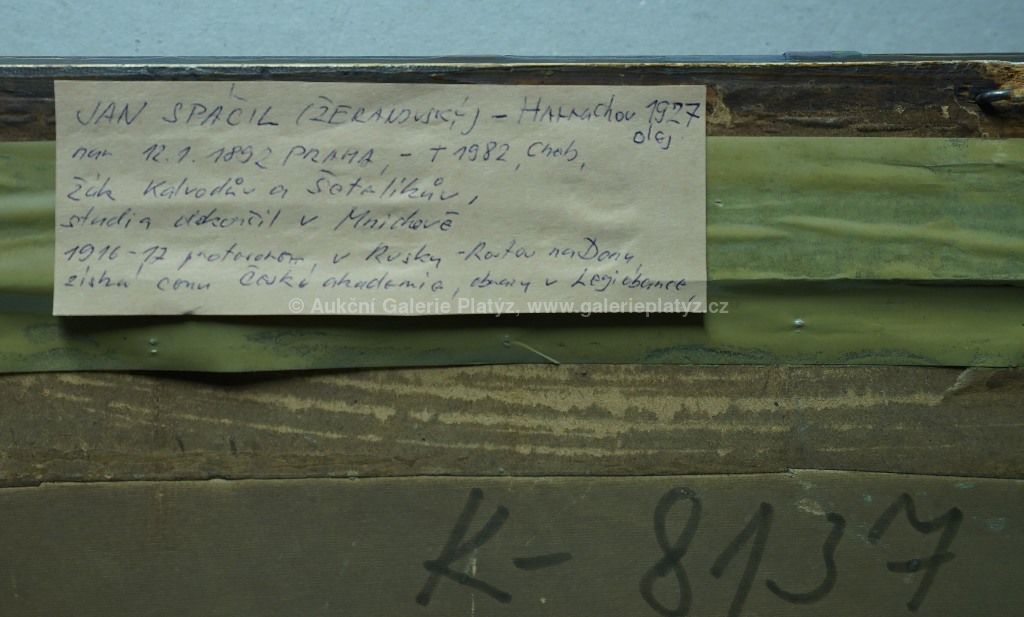 JAN SPÁČIL (ŽERANOVSKÝ) - HARRACHOV 1927
olej
nar 12.1.1892 PRAHA, - † 1982, Cheb,
žák Kalvodův a Šetelíkův,
studia dokončil v Mnichově
1916-17 v Rusku - Rostov na Donu,
získal cenu České akademie, obrazy v Legiobance,
© Aukční Galerie Platýz, www.galerieplatyz.cz
K-8137